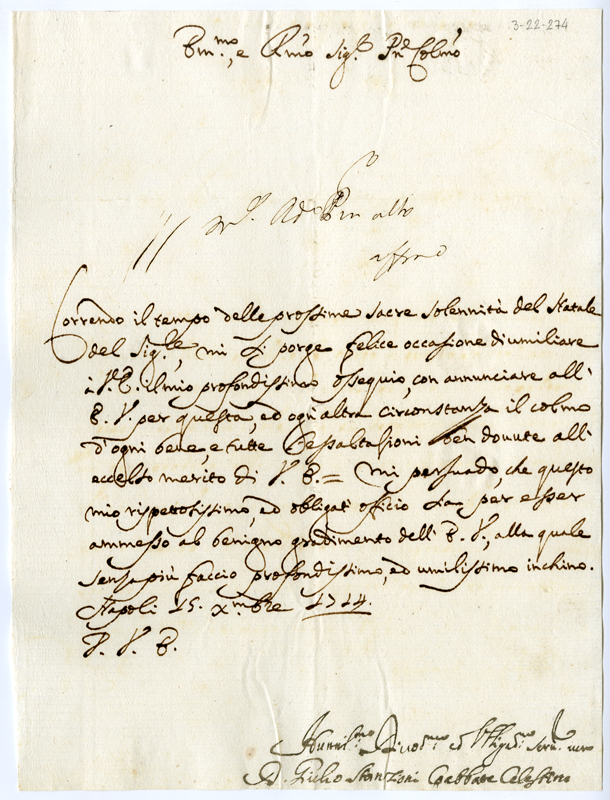 3-22-274
Em.mo, e R.mo Sig.r Pn̄e Colmo
Correndo il tempo delle prossime sacre solennità del Natale
del Sig.re, mi si porge felice occasione di umiliare
à V.E. il mio profondissimo ossequio, con annunciare all'
E.V. per questa, ed ogn'altra circostanza il colmo
d'ogni bene, e tutte l'essaltasioni ben dovute all'
eccelso merito di V.E. = Mi persuado, che questo
mio rispettosissimo, ed obligati officio sia per esser
ammesso al benigno gradimento dell'E.V., alla quale
senza più faccio profondissimo, ed umilissimo inchino.
Napoli 15. Xmbre 1714.
D.V.E.
Humil.mo Divot.mo ed Obligat.mo Serv. vero
D. Giulio Stanzoni Abbate Celestino